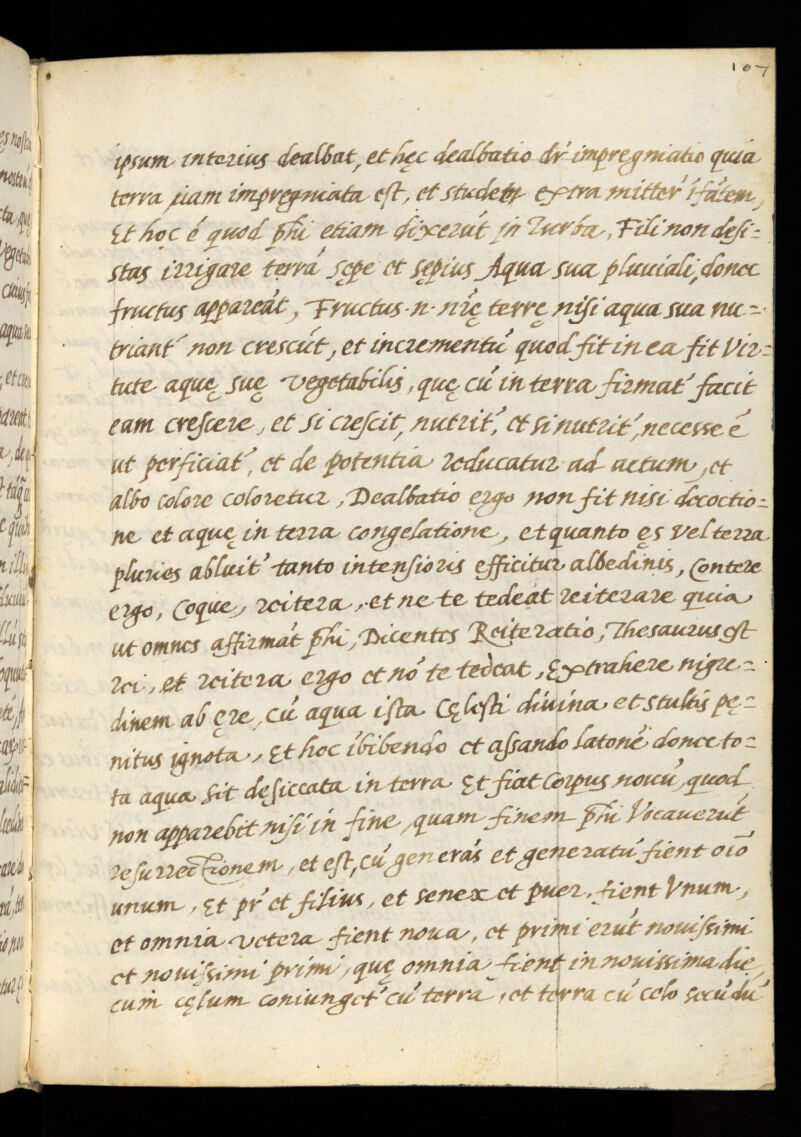 107
ipsum interius dealbat, et hęc dealbatio dr̄ impregniatio quia
terra jiam impregniata est, et extra mitter̄
Et hoc ē quod p̄hi etiam dixerūt jn Turba, Fili non desi=
stas irrigare terrā sępe et sępius Aqua sua pluuiali, donec
fructus appareāt, Fructus .n. nr̄ę terrę nisi aqua sua nu=
triant̄ non crescūt, et incrementū quod fit in ea fit Vir=
tute aquę suę vegetabilis, quę cū in terra firmat̄ facit
eam crescere, et si crescit, nutrit̄, et si nutrit̄, necesse ē
ut perficiat̄, et de potentia reducatur ad actum, et
albo colore coloretur, Dealbatio ergo non fit nisi decoctio=
ne et aquę in terra congelatione, et quanto ęs vel terra
pluries abluit̄ tanto intensioris efficitur albedinis, Contere
ergo, Coque, reitera, et ne te tedeat reiterare quia
ut omnes affirmāt p̄hi, Dicentes Reiteratio, Thesaurus est
rei, et reitera ergo et nō te tedeat, Extrahere nigre=
dinem ab ęre, cū aqua ista Cęlesti diuina et stultis pę=
nitus ignota, Et hoc ībibendo et assando latonē donec to=
ta aqua sit desiccata in terra Et fiat Corpus nouū, quod
non apparebit nisi in fine, quam finem p̄hi Vocauerūt
resurrectionem, et est, cū generās et generatū fient oīo
unum, Et pr̄ et filius, et senex et puer, fient Vnum,
et omnia vetera fient noua, et primi erūt nouissimi
et nouissimi primi, quę omnia fient in nouissima die,
cum cęlum coniunget̄ cū terra, et terra cū celo secūdū